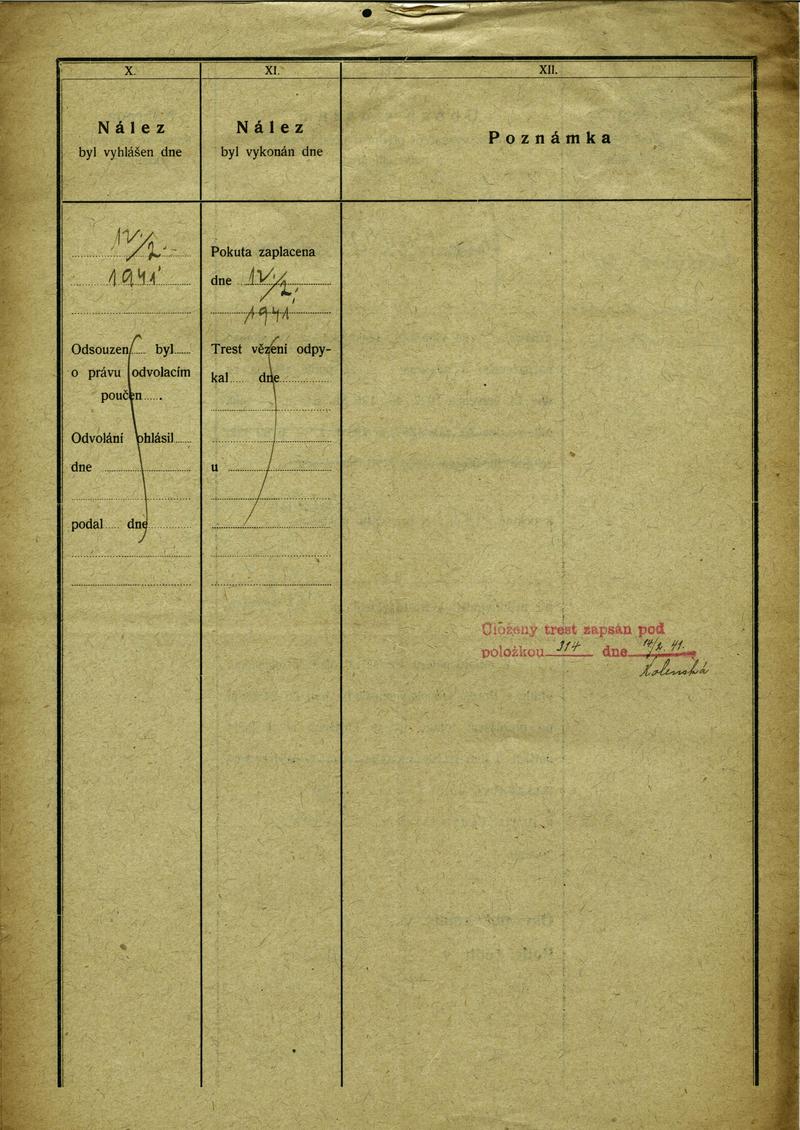 X.
Nález
byl vyhlášen dne
12./2.
1941
Odsouzen byl
o právu odvolacím
poučen .
Odvolání ohlásil
dne
podal dne
XI.
Nález
byl vykonán dne
Pokuta zaplacena
dne 12./2.
1941
Trest vězení odpy-
kal dne
u
XII.
Poznámka
Uložený trest zapsán pod
položkou 314 dne 14/2. 41.
Kolenská